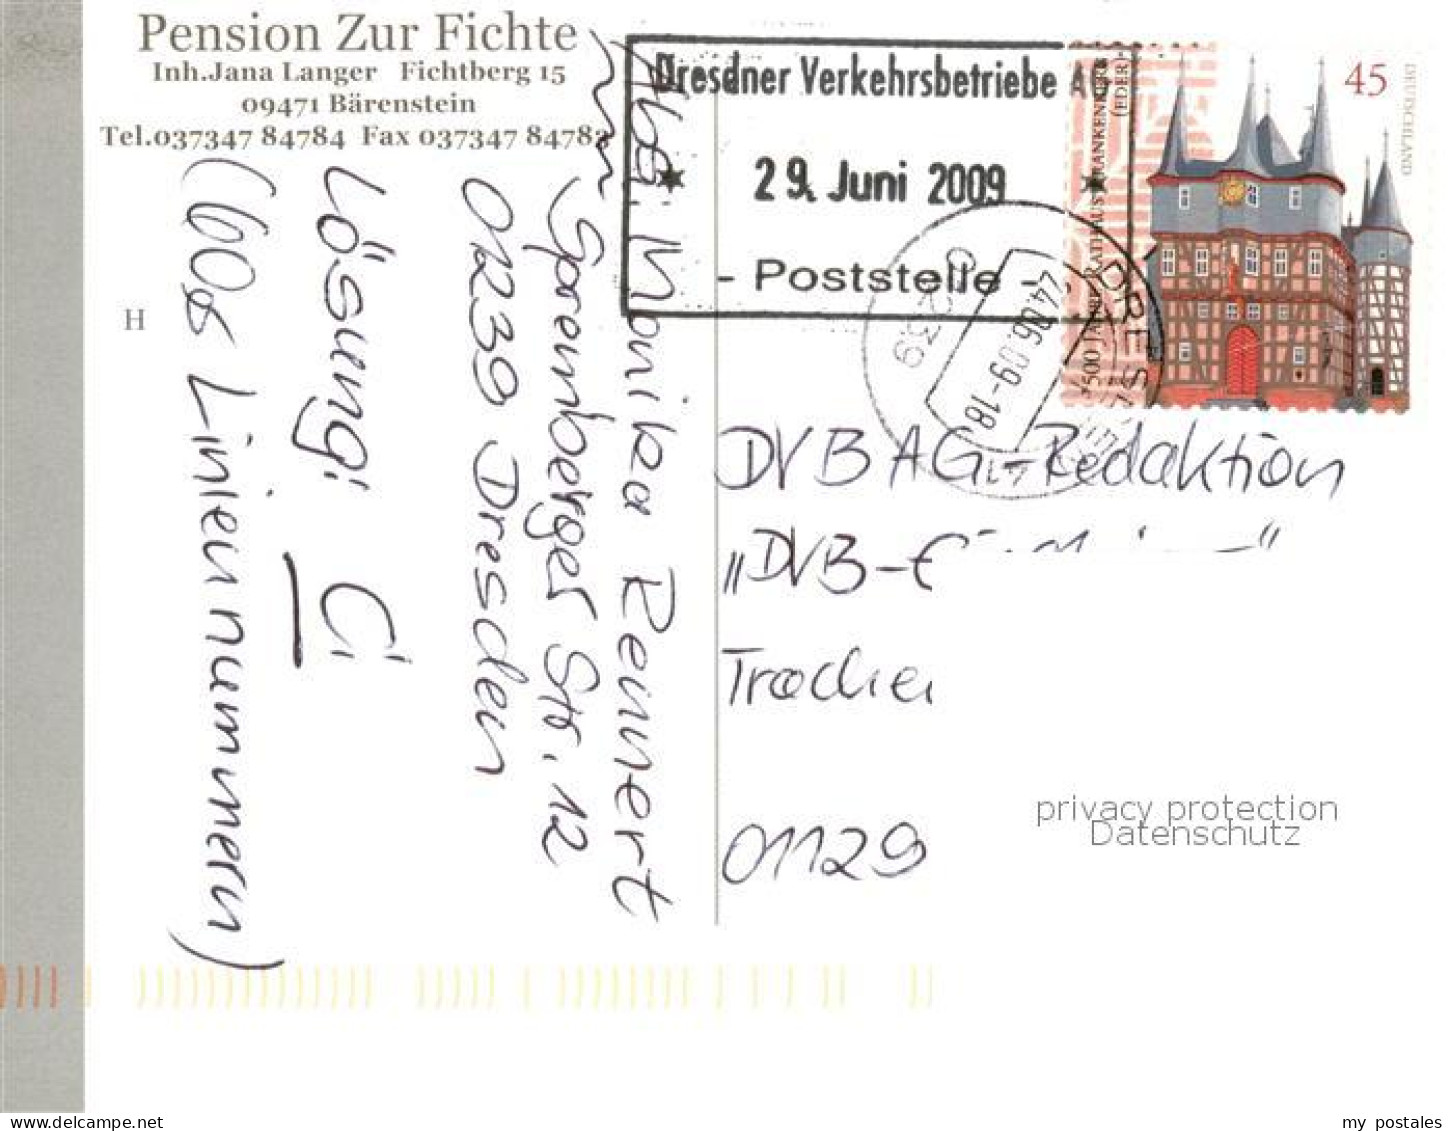 Pension Zur Fichte
Inh.Jana Langer Fichtberg 15
09471 Bärenstein
Tel.037347 84784 Fax 037347 84783
Dresdner Verkehrsbetriebe AG
29. Juni 2009
- Poststelle -
45
DEUTSCHLAND
500 JAHRE RATHAUS FRANKENBERG
(EDER)
DRESDEN
24.06.09-18
01239
41
Abs. Monika Reinert
Spremberger Str. 12
01239 Dresden
Lösung: C
(bos Liniennummern)
H
DVB AG-Redaktion
„DVB-
01129
privacy protection
Datenschutz
my postales